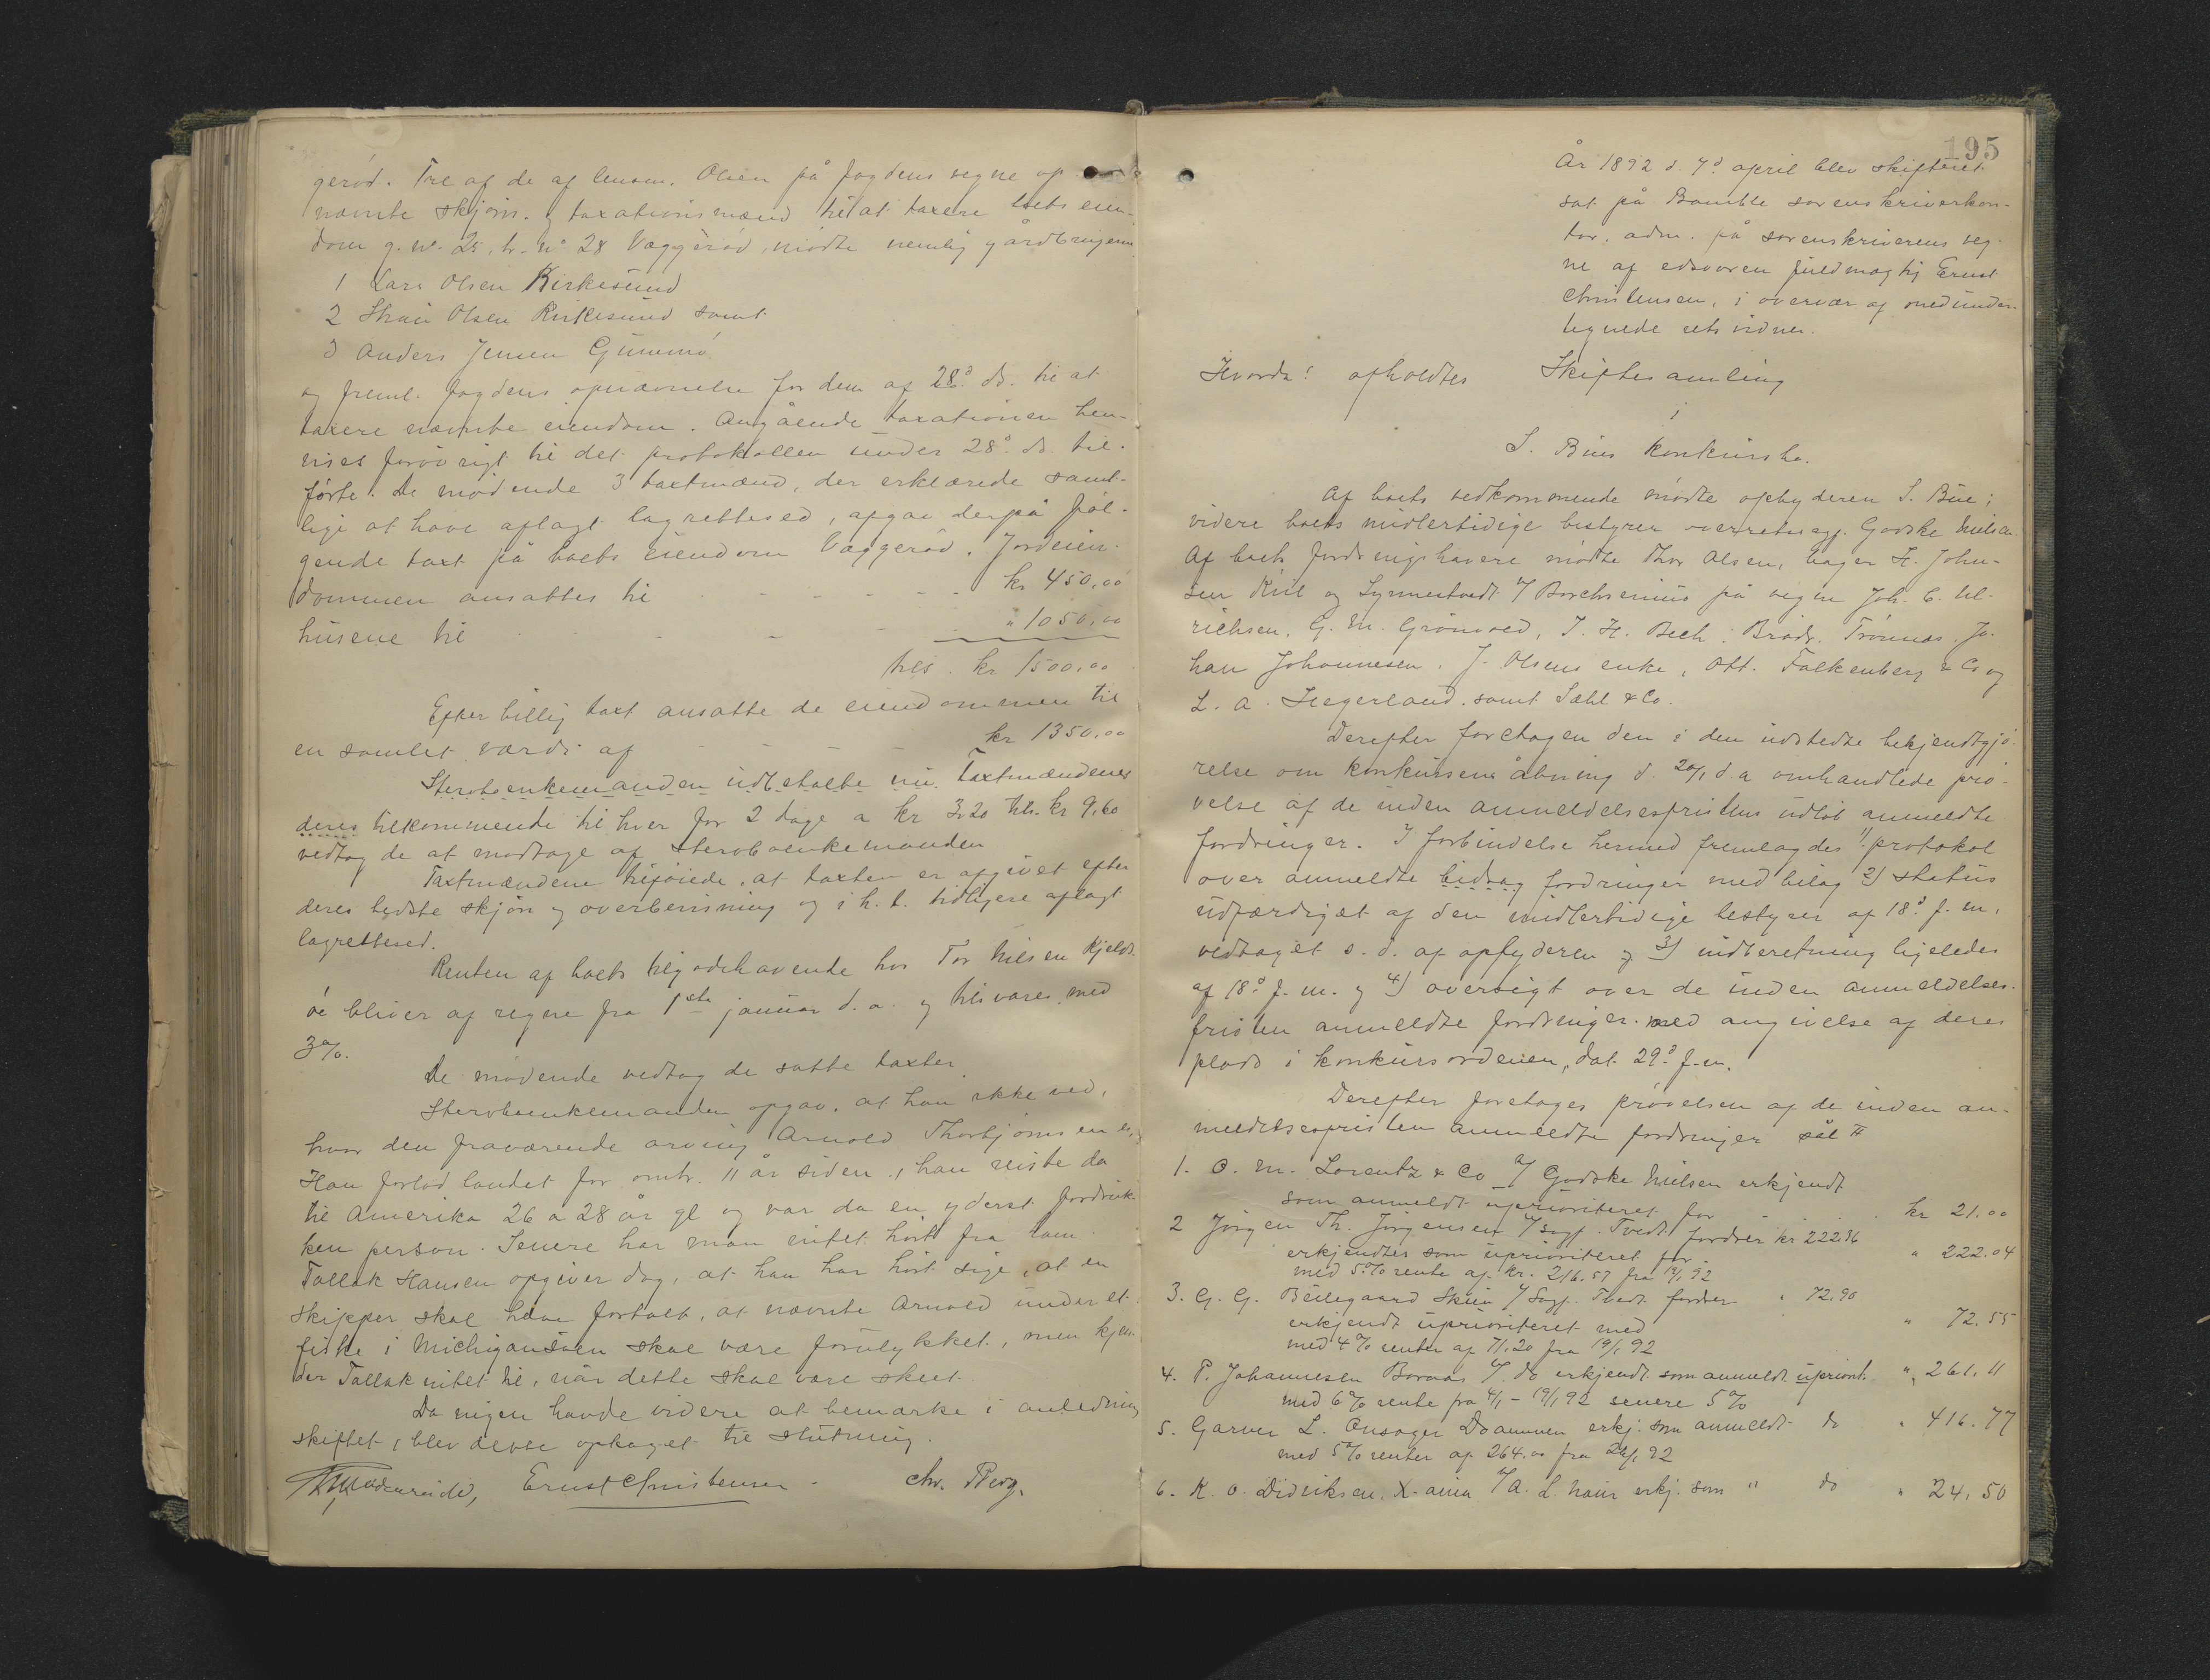 gerød. Tre af de af lensm. Olsen på fogdens vegne op
nævnte skjøns- og taxationsmænd til at taxere boets eien-
dom g. no. 25, b. no 28 Vaggerød, mødte nemlig gårdbrugerne
1 Lars Olsen Kirkesund
2 Olsen Kirkesund samt
3 Anders Jensen Gummø
og freml. fogdens opnævnelse for dem af 28d ds. til at
taxere nævnte eiendom. Angående taxationen hen-
vises forøvrigt til det protokollen under 28d ds. til-
førte. De mødende 3 taxtmænd, der erklærede samt-
lige at have aflagt lagrettesed, afgav derpå føl-
gende taxt på boets eiendom Vaggerød. Jordeien-
dommen ansattes til - - - - - - kr 450,00
husene til - - - " 1050,00
tils. kr 1500,00
Efter billig taxt ansatte de eiendommen til
en samlet værdi af - - - - kr 1350,00
Stervboenkemanden udbetalte nu Taxtmændenes
deres tilkommende til hver for 2 dage a kr 3,20 tils. kr 9,60
vedtog de at modtage af stervboenkemanden
Taxtmændene tilføiede, at taxten er afgivet efter
deres bedste skjøn og overbevisning og i h. t. tidligere aflagt
lagrettesed.
Renten af boets tilgodehavende hos Tor Nilsen Kjelds-
øe bliver at regne fra 1ste januar d. a. og tilsvares med
3%.
De mødende vedtog de satte taxter.
Stervboenkemanden opgav, at han ikke ved,
hvor den fraværende arving Arnold Thorbjørnsen er.
Han forlod landet for omtr. 11 år siden, han reiste da
til Amerika 26 a 28 år gl og var da en yderst fordruk-
ken person. Senere har man intet hørt fra ham.
Tallak Hansen opgiver dog, at han har hørt sige, at en
skipper skal have fortalt, at nævnte Arnold under et
fiske i Michigansøen skal være forulykket, men kjen-
der Tallak intet til, når dette skal være skeet.
Da ingen havde videre at bemærke i anledning
skiftet, blev dette optaget til slutning.
Ernst Christensen. Chr. Berg.
195
År 1892 d. 7d april blev skifteret
sat på Bamble sorenskriverkon-
tor, adm. på sorenskriverens veg-
ne af edsvoren fuldmægtig Ernst
Christensen, i overvær af medunder-
tegnede retsvidner.
Hvorda: afholdtes Skiftesamling
i
S. Bues konkursbo.
Af boets vedkommende mødte opbyderen S. Bue;
videre boets midlertidige bestyrer overretssagf. Godske Nielsen.
Af boets fordringshavere mødte Thor Olsen, bager H. John-
sen Kiil og Synnestvedt f/ Borchsenius på vegne Joh. C. Ul-
richsen, G. M. Grønvold, J. H. Bech, Brødr. Trønnes, Jo-
han Johannesen, J. Olsens enke, Ott. Falkenberg & Co og
L. A. Hegerland samt Sæhl & Co.
Derefter foretagen den i den udstedte bekjendtgjø-
relse om konkursens åbning d. 20/1 d. a omhandlede prø-
velse af de inden anmeldelsesfristens udløb anmeldte
fordringer. I forbindelse hermed fremlagdes 1) protokol
over anmeldte bidrag fordringer med bilag 2) status
udfærdiget af den midlertidige bestyrer af 18d f. m.
vedtaget s. d. af opbyderen og 3) indberetning ligeledes
af 18d f. m. og 4) oversigt over de inden anmeldelses-
fristen anmeldte fordringer med angivelse af deres
plads i konkursordenen, dat. 29d f. m.
Derefter foretoges prøvelsen af de inden an-
meldelsesfristen anmeldte fordringer sål
1. O. M. Lorentz & Co v/ Godske Nielsen erkjendt
som anmeldt uprioriteret for kr 21.00
2 Jørgen Th. Jørgensen v/ sagf. Tvedt fordrer kr 222,36
erkjendtes som uprioriteret for " 222.04
med 5% rente af kr. 216.57 fra 19/1 92
3. G. G. Beilegaard Skien v/ Sagf. Tvedt fordrer " 72.90
erkjendt uprioriteret med " 72.55
med 4% renter af 71.20 fra 19/1 92
4. P. Johannesen Boraas v/ do erkjendt som anmeldt upriorit. " 261.11
med 6% rente fra 4/1 - 19/1 92 senere 5%
5. Garver L. Onsager Drammen erkj. som anmeldt do " 416.77
med 5% renter af 264.00 fra 24/1 92
6. K. O. Didriksen, X-ania v/ A. L. erkj. som " do " 24.50